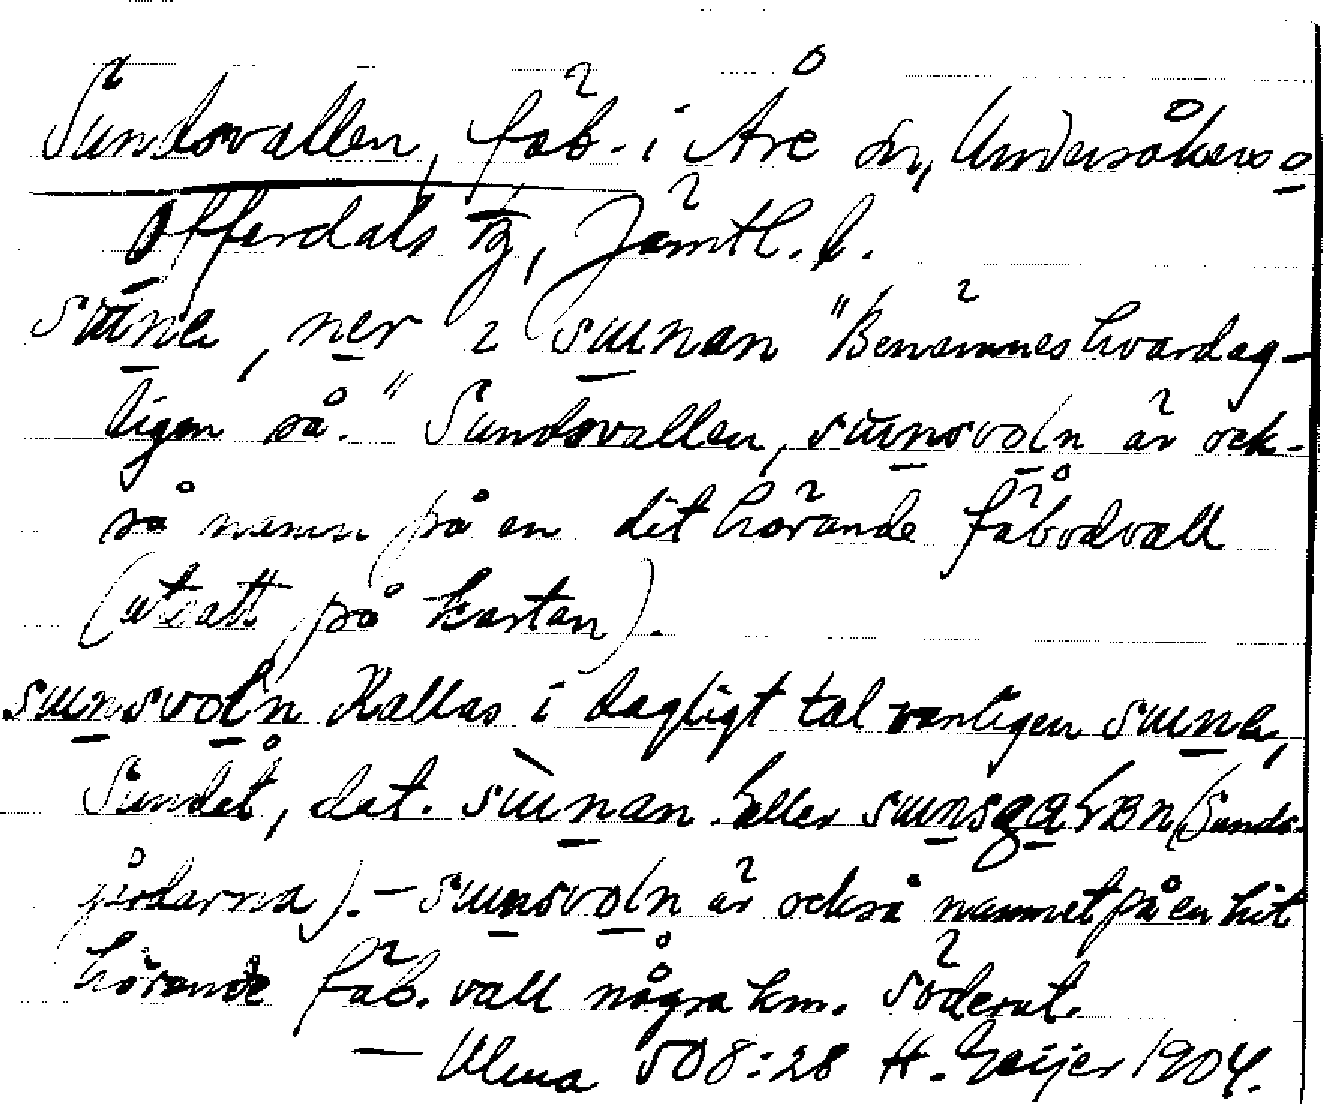 Sundsvallen, fäb. i Åre sn, Undersåkers o
Offerdals tg, Jämtl. l.
sɯne, ner i sɯnan "Benämnes hvardag-
ligen så." Sundsvallen, sɯnsvoln är ock-
så namn på en dit hörande fäbodvall
(utsatt på kartan).
sɯnsvoln Kallas i dagligt tal vanligen sɯne,
Sundet, dat. sɯ̀nan. eller (Sunds-
gårdarna). – sɯnsvoln är också namnet på en hit
hörande fäb. vall några km. söderut.
— Ulma 508:28 H. Geijer 1904.